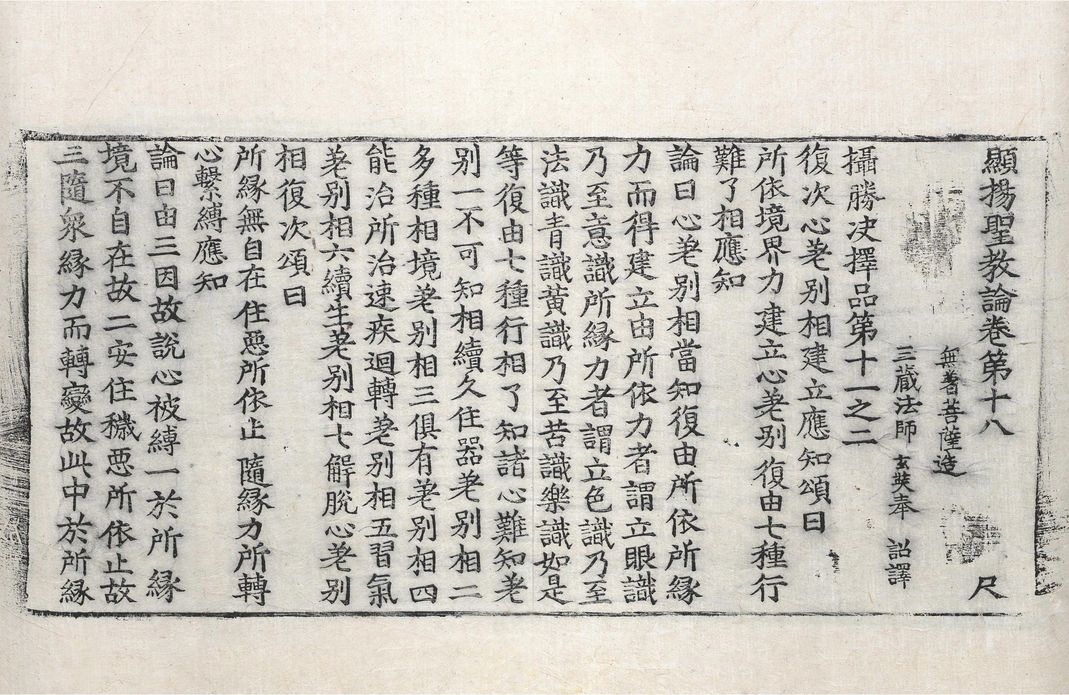 顯揚聖教論卷第十八 尺
無著菩薩造
三藏法師 玄奘奉 詔譯
攝勝决擇品第十一之二
復次心差別相建立應知頌曰
所依境界力建立心差別復由七種行
難了相應知
論曰心差別相當知復由所依所緣
力而得建立由所依力者謂立眼識
乃至意識所緣力者謂立色識乃至
法識青識黃識乃至苦識樂識如是
等復由七種行相了知諸心難知差
別一不可知相續久住器差別相二
多種相境差別相三俱有差別相四
能治所治速疾迴轉差別相五習氣
差別相六續生差別相七解脫心差別
相復次頌曰
所緣無自在 住惡所依止 隨緣力所轉
心繫縛應知
論曰由三因故說心被縛一於所緣
境不自在故二安住穢惡所依止故
三隨衆緣力而轉變故此中於所緣